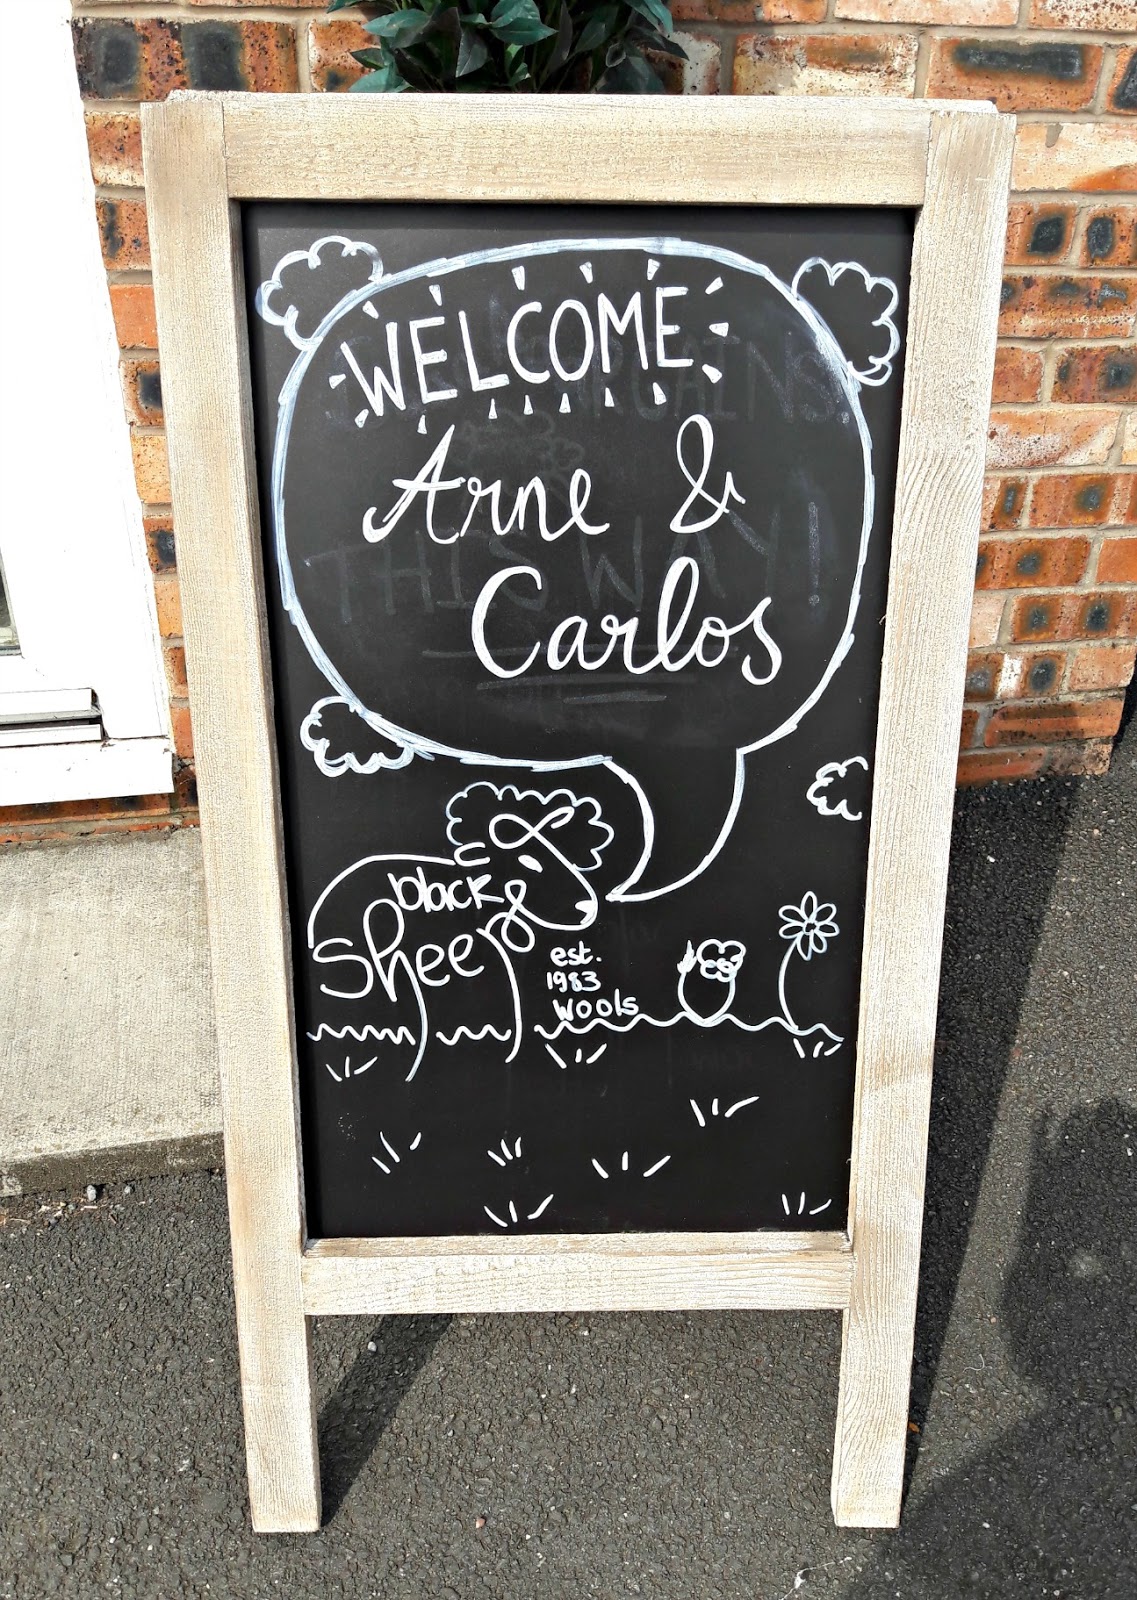 WELCOME
Arne &
Carlos
black
Sheep
est.
1983
wools
THIS WAY!